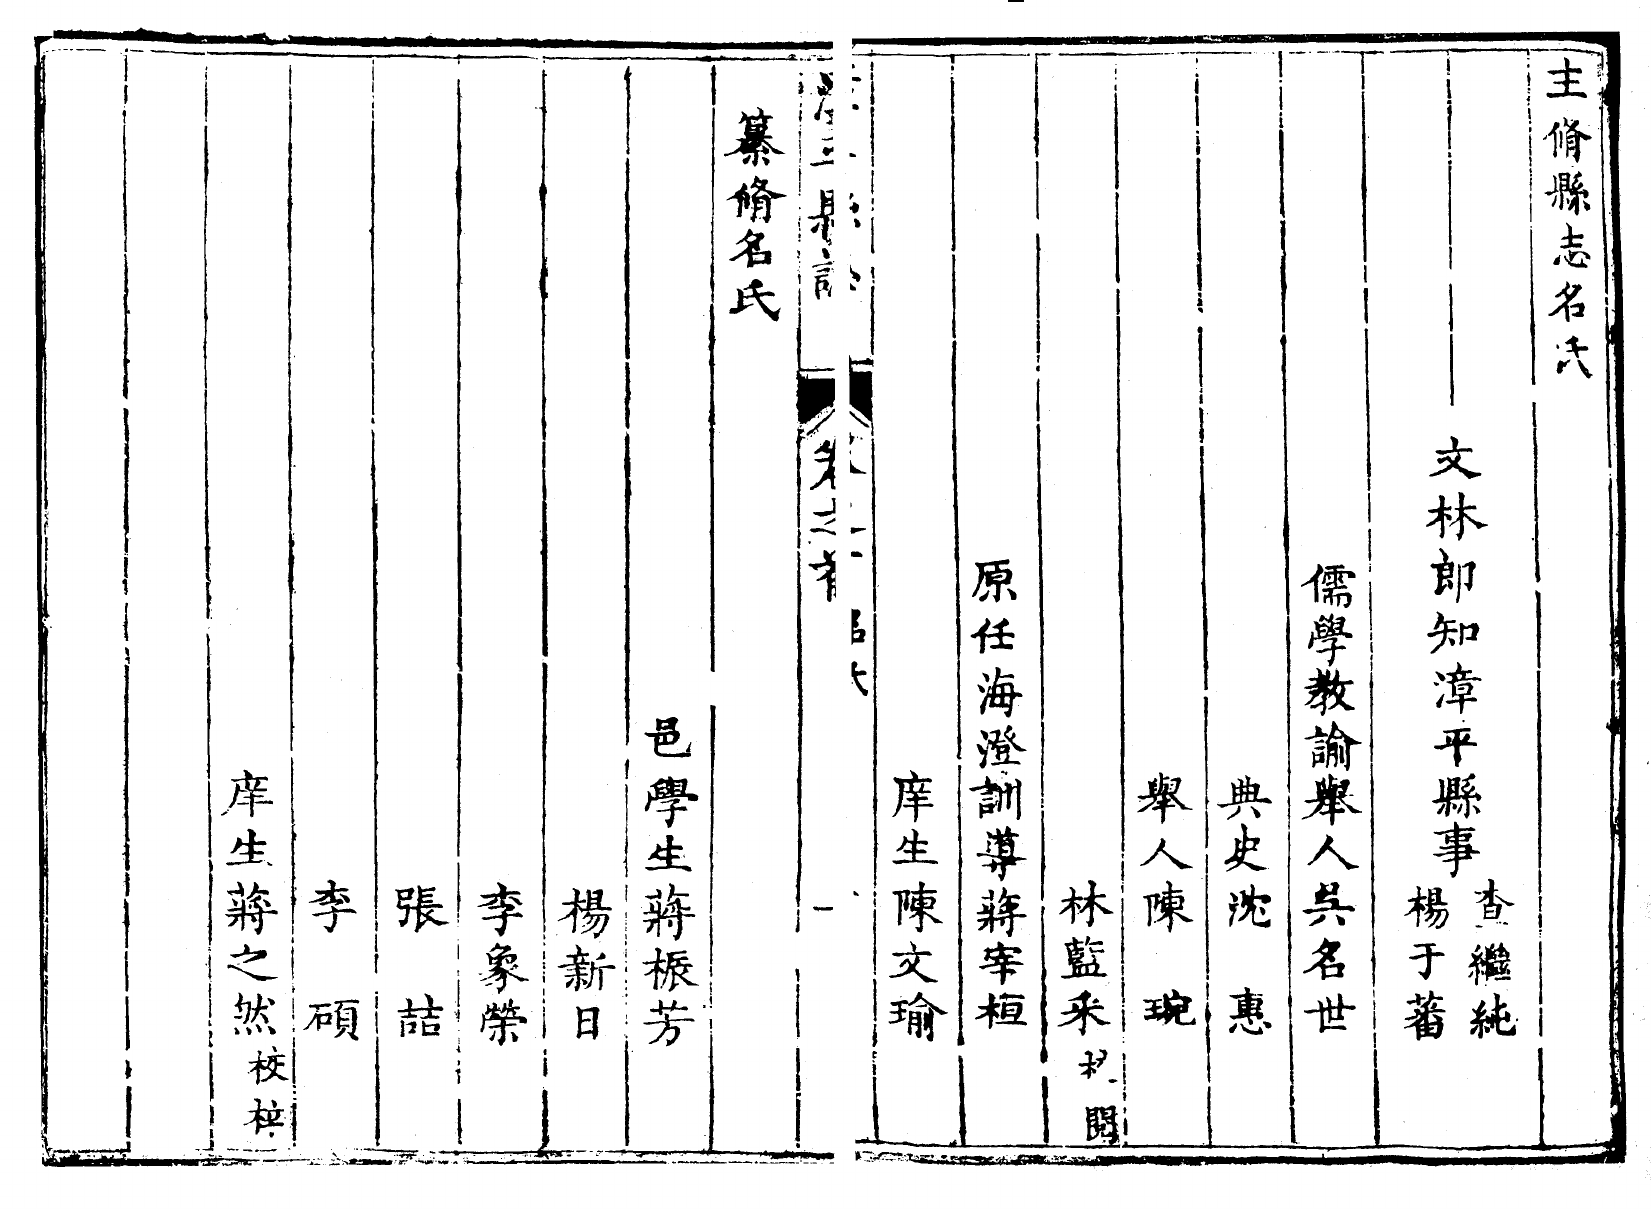 主脩縣志名氏
文林郎知漳平縣事
查繼純
楊于蕃
儒學教諭舉人吳名世
典史沈惠
舉人陳琬
林藍采
閱
原任海澄訓導蔣宰桓
庠生陳文瑜
漳平縣誌
卷之首
名氏
一
纂脩名氏
邑學生蔣振芳
楊新日
李象榮
張喆
李碩
庠生蔣之然校梓